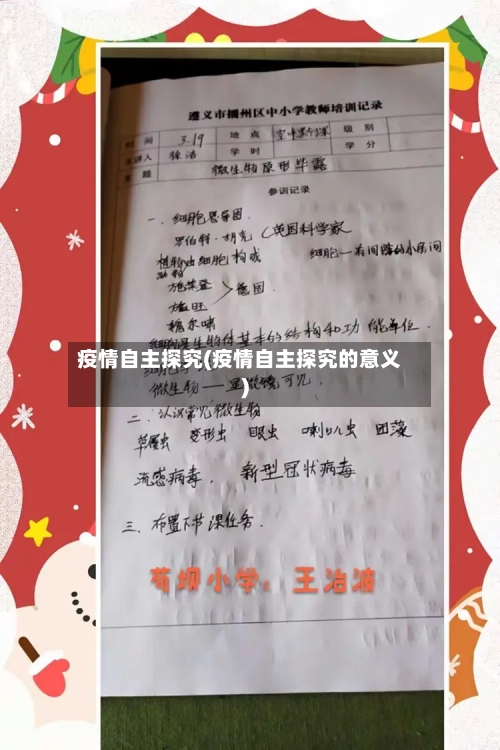 遵义市播州区中小学教师培训记录
时 间 3.19 地 点 空中黔课 级 别
主讲人 徐洁 学 时 学 分
主 题 微生物原形毕露
参训记录
一、细胞是
罗伯特·胡克 (英国科学家
植物由细胞构成 细胞—有间隙的小房间
动物
施莱登
施旺 > 德国
细胞是生物体基本的结构和功能单位.
疫情自主探究(疫情自主探究的意义
)
微生物——显微镜可见.
二、认识常见微生物
草履虫 变形虫 眼虫 喇叭虫 团藻
流感病毒. 新型冠状病毒
三、布置下节课任务.
苟坝小学：王治波